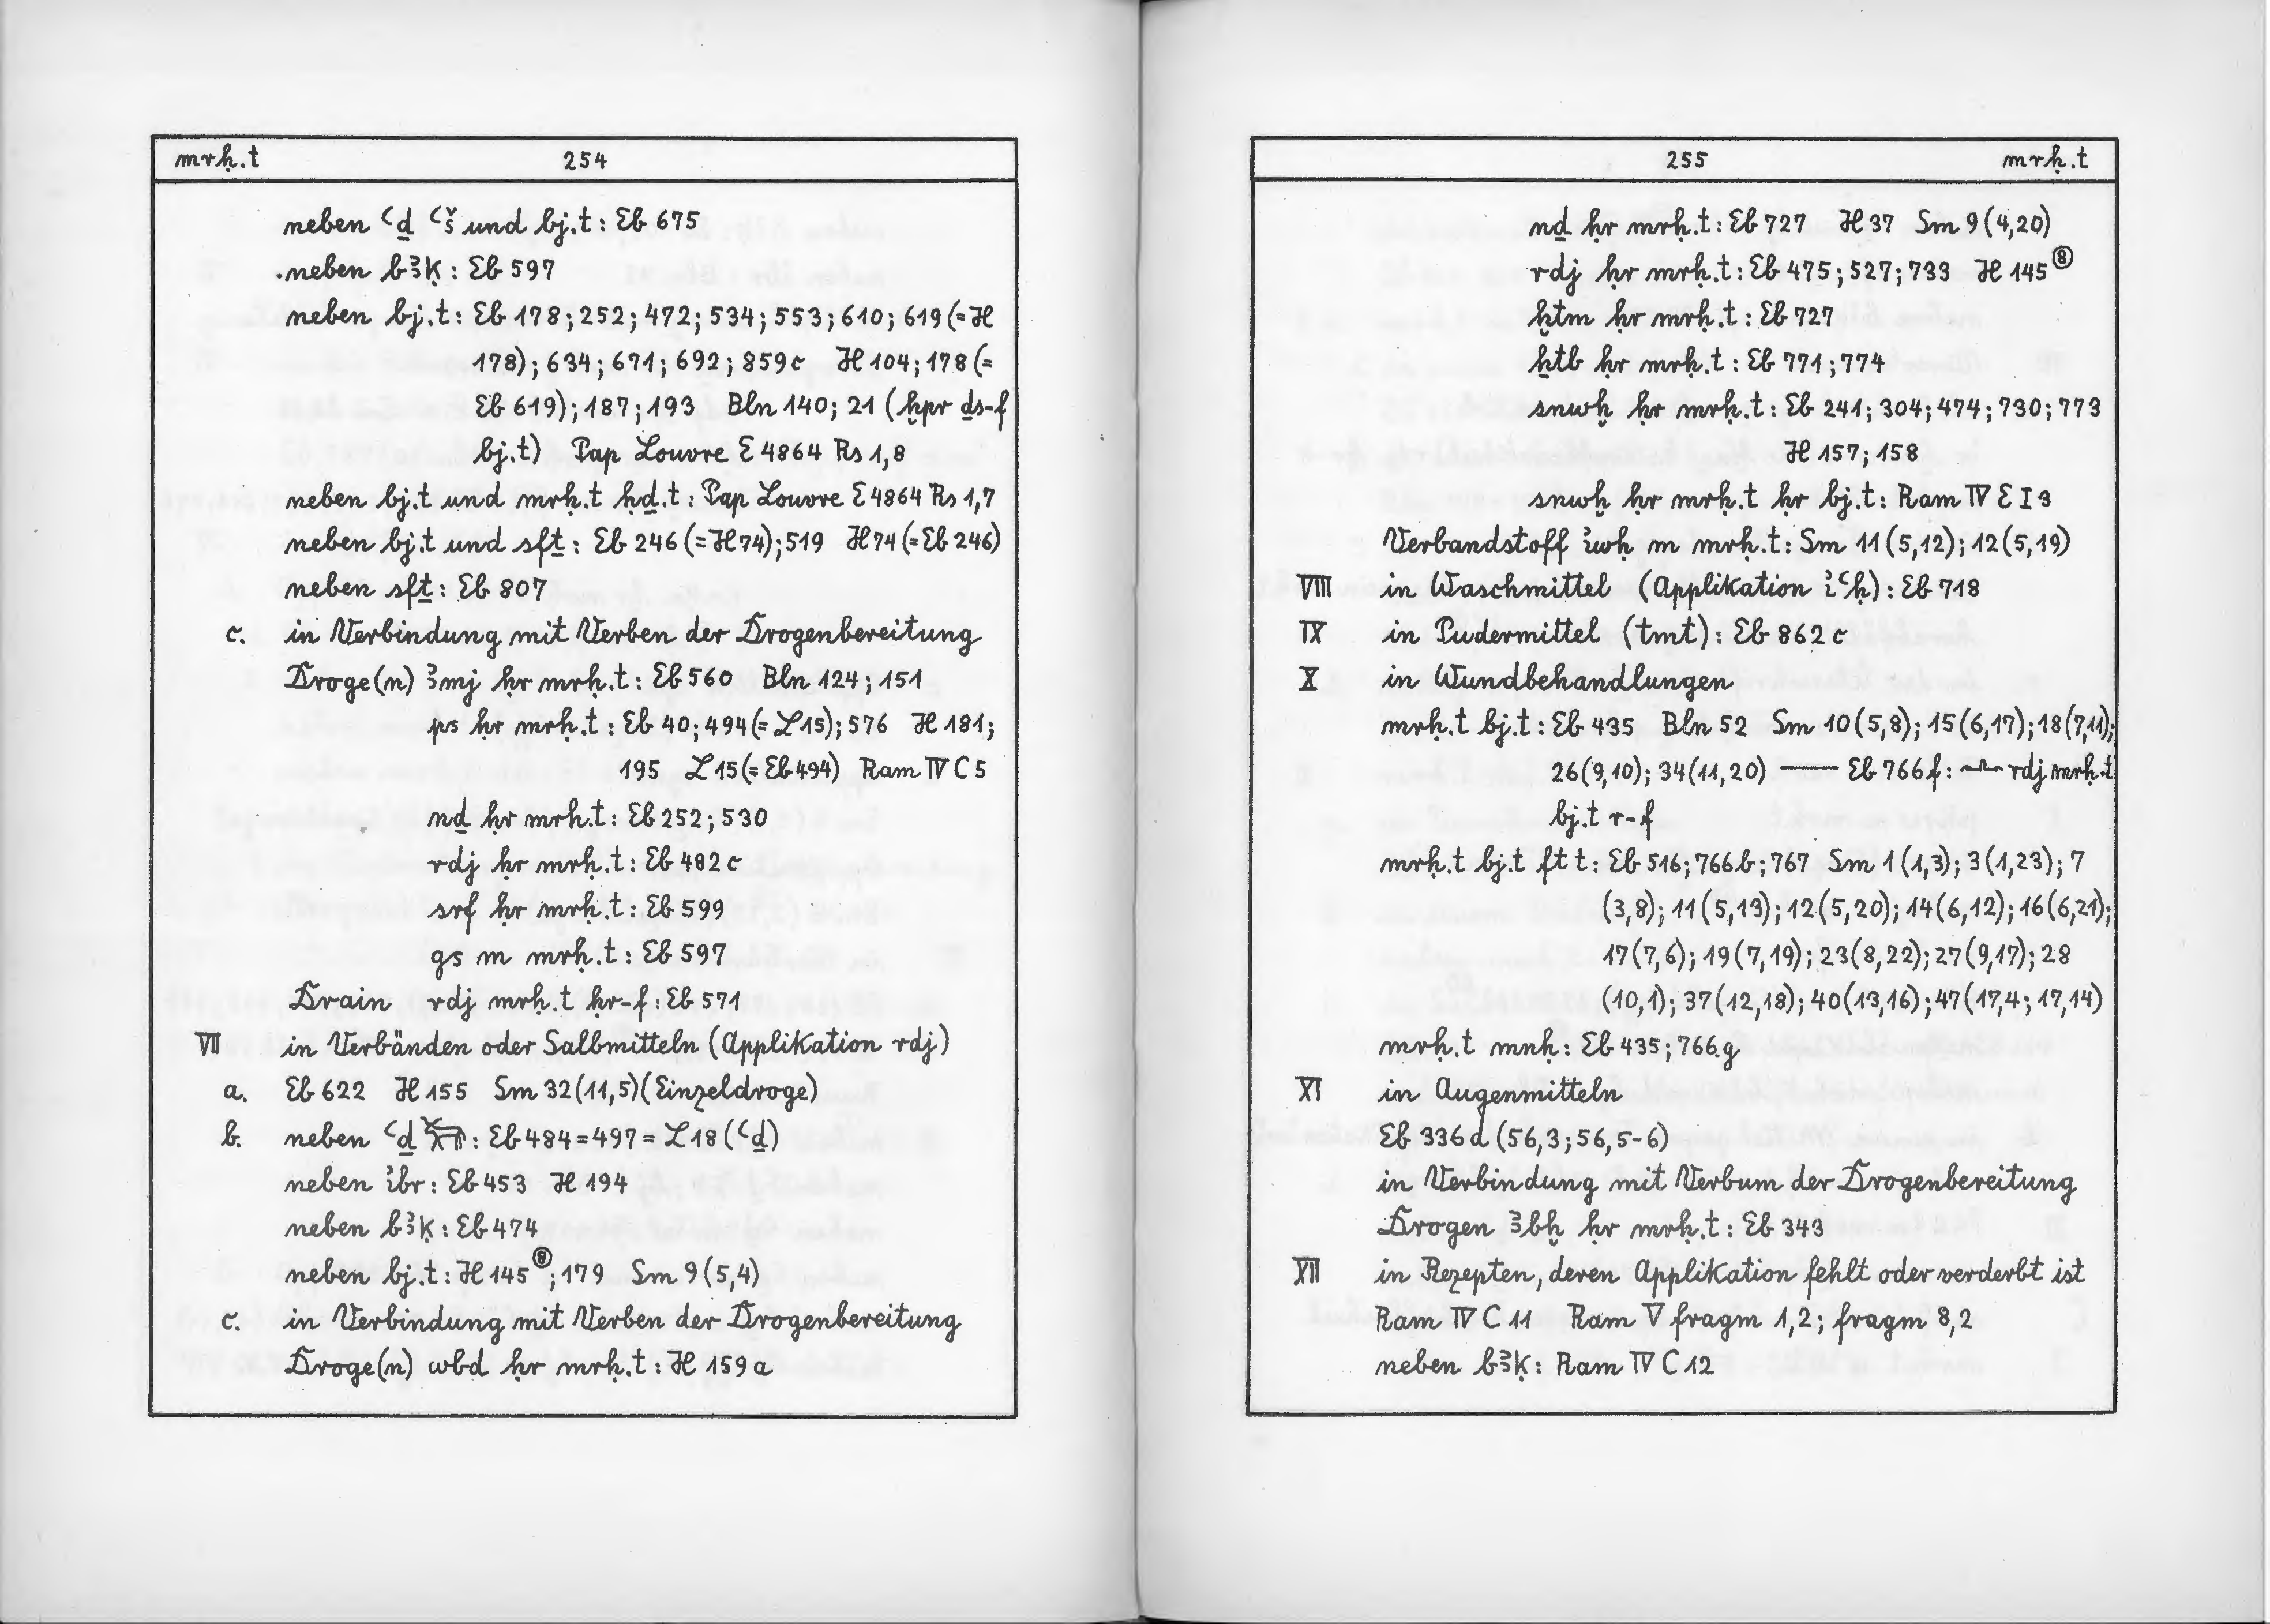 mrḥ.t 254
neben ꜥḏ ꜥš und bj.t: Eb 675
neben bꜣḳ: Eb 597
neben bj.t: Eb 178; 252; 472; 534; 553; 610; 619 (= H
178); 634; 671; 692; 859c H 104; 178 (=
Eb 619); 187; 193 Bln 140; 21 (ḫpr ḏs-f
bj.t) Pap Louvre E 4864 Rs 1,8
neben bj.t und mrḥ.t ḥḏ.t: Pap Louvre E 4864 Rs 1,7
neben bj.t und sfṯ: Eb 246 (= H 74); 519 H 74 (= Eb 246)
neben sfṯ: Eb 807
c. in Verbindung mit Verben der Drogenbereitung
Droge(n) ꜣmj ḥr mrḥ.t: Eb 560 Bln 124; 151
ps ḥr mrḥ.t: Eb 40; 494 (= L 15); 576 H 181;
195 L 15 (= Eb 494) Ram IV C 5
nḏ ḥr mrh.t: Eb 252; 530
rdj ḥr mrḥ.t: Eb 482c
srf ḥr mrḥ.t: Eb 599
gs m mrḥ.t: Eb 597
Drain rdj mrḥ.t ḥr-f: Eb 571
VII in Verbänden oder Salbmitteln (Applikation rdj)
a. Eb 622 H 155 Sm 32 (11,5) (Einzeldroge)
b. neben ꜥḏ : Eb 484 = 497 = L 18 (ꜥḏ)
neben ꞽbr: Eb 453 H 194
neben bꜣḳ: Eb 474
neben bj.t: H 145⑧; 179 Sm 9 (5,4)
c. in Verbindung mit Verben der Drogenbereitung
Droge(n) wbd ḥr mrḥ.t: H 159a
255 mrḥ.t
nḏ ḥr mrḥ.t: Eb 727 H 37 Sm 9 (4,20)
rdj ḥr mrḥ.t: Eb 475; 527; 733 H 145⑧
ḫtm ḥr mrḥ.t: Eb 727
ẖtb ḥr mrḥ.t: Eb 771; 774
snwḫ ḥr mrḥ.t: Eb 241; 304; 474; 730; 773
H 157; 158
snwḫ ḥr mrḥ.t ḥr bj.t: Ram IV E I 3
Verbandstoff ꞽwḥ m mrḥ.t: Sm 11 (5,12); 12 (5,19)
VIII in Waschmittel (Applikation ꞽꜥḥ): Eb 718
IX in Pudermittel (tmt): Eb 862c
X in Wundbehandlungen
mrḥ.t bj.t: Eb 435 Bln 52 Sm 10 (5,8); 15 (6,17); 18 (7,11);
26 (9,10); 34 (11,20) — Eb 766f: 𓂜 rdj mrḥ.t
bj.t r-f
mrḥ.t bj.t ftt: Eb 516; 766b; 767 Sm 1 (1,3); 3 (1,23); 7
(3,8); 11 (5,13); 12 (5,20); 14 (6,12); 16 (6,21);
17 (7,6); 19 (7,19); 23 (8,22); 27 (9,17); 28
(10,1); 37 (12,18); 40 (13,16); 47 (17,4; 17,14)
mrḥ.t mnḥ: Eb 435; 766g
XI in Augenmitteln
Eb 336d (56,3; 56,5-6)
in Verbindung mit Verbum der Drogenbereitung
Drogen ꜣbḫ ḥr mrḥ.t: Eb 343
XII in Rezepten, deren Applikation fehlt oder verderbt ist
Ram IV C 11 Ram V fragm 1,2; fragm 8,2
neben bꜣḳ: Ram IV C 12